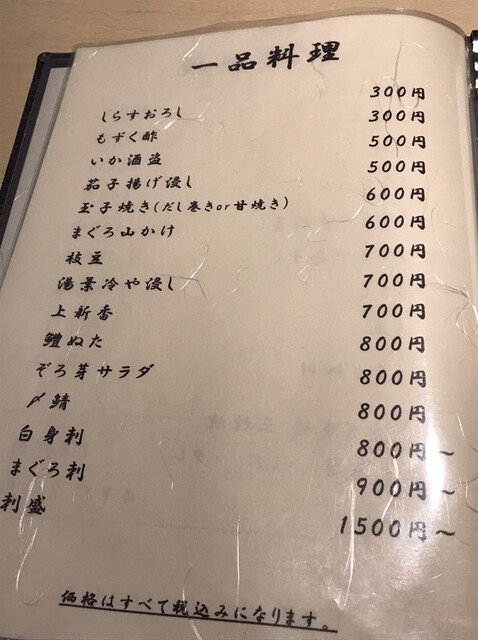 一品料理
しらすおろし 300円
もずく酢 300円
いか酒盗 500円
茄子揚げ浸し 500円
玉子焼き(だし巻きor甘焼き) 600円
まぐろ山かけ 600円
枝豆 700円
湯葉冷や浸し 700円
上新香 700円
鱧ぬた 800円
ぞろ芽サラダ 800円
〆鯖 800円
白身刺 800円～
まぐろ刺 900円～
刺盛 1500円～
価格はすべて税込みになります。